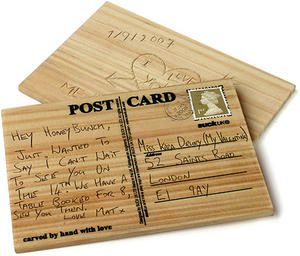 1/9/2007
I LOVE
ME
YOU
POST CARD
suck uk
HEY HONEYBUNCH,
JUST WANTED TO
SAY I CAN'T WAIT
TO SEE YOU ON
THE 14TH. WE HAVE A
TABLE BOOKED FOR 8,
SEE YOU THEN.
LOVE MAT x
MISS KARA DRURY (MY VALENTINE)
22 SAINTS ROAD
LONDON
E1 9AY
carved by hand with love